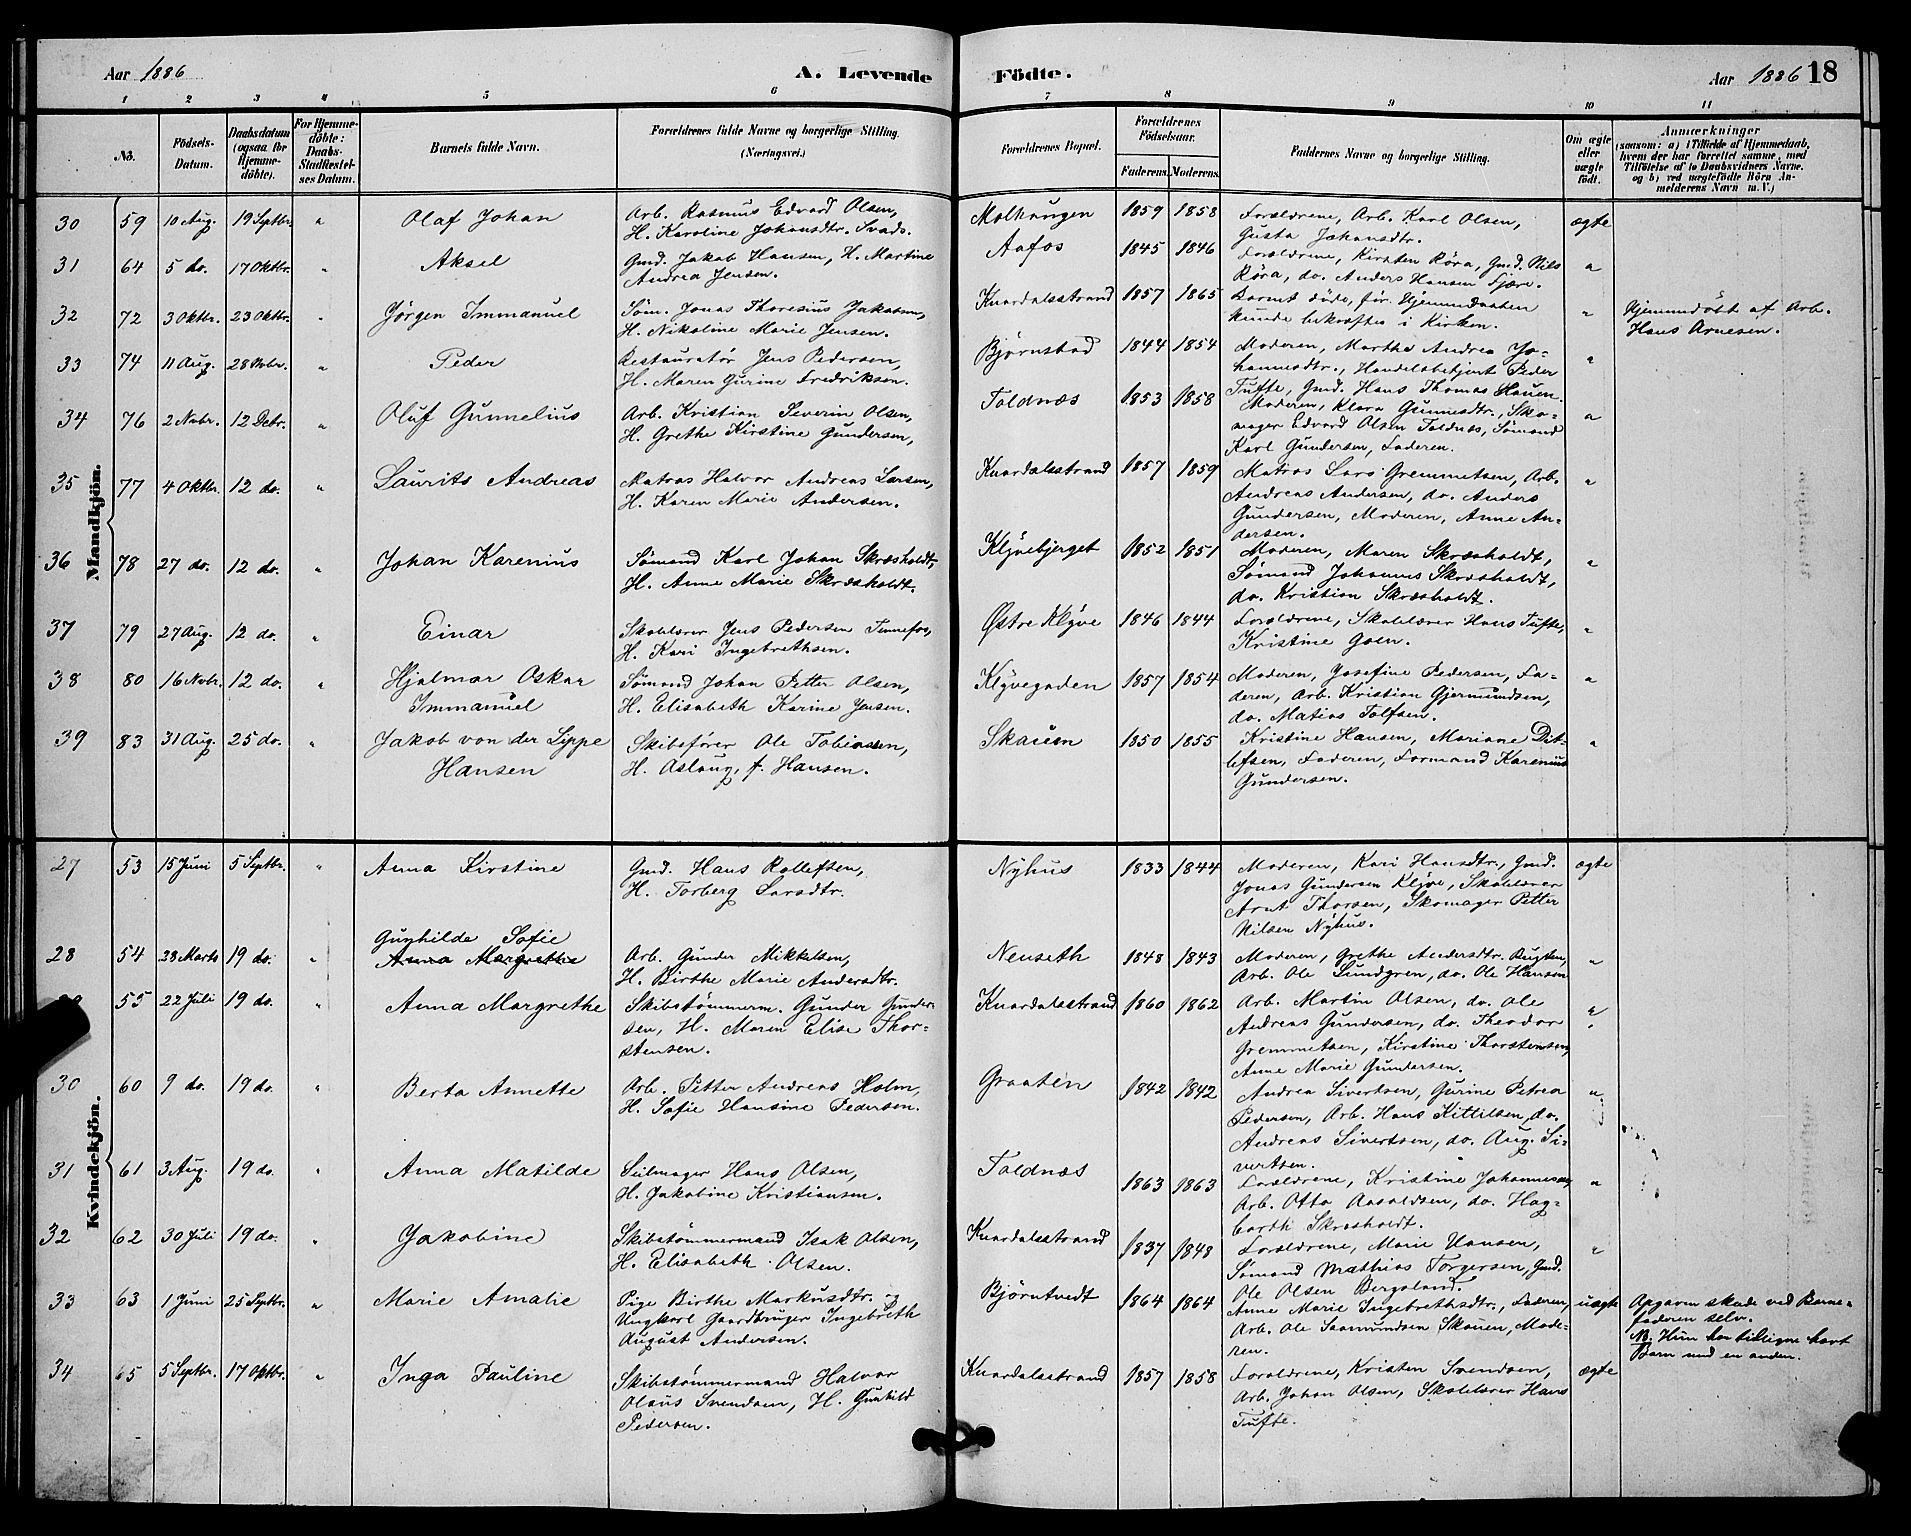 Aar 1886
A. Levende Födte.
Aar 1886 18
1 2 3 4 5 6 7 8 9 10 11
No.
Födsels-
Datum.
Daabsdatum
(ogsaa for
Hjemme-
döbte).
For Hjemme-
döbte:
Daabs-
Stadfæstel-
ses Datum.
Barnets fulde Navn.
Forældrenes fulde Navne og borgerlige Stilling.
(Næringsvei.)
Forældrenes Bopæl.
Forældrenes
Födselsaar.
Faderens. Moderens.
Faddernes Navne og borgerlige Stilling.
Om ægte
eller
uægte
födt.
Anmærkninger
(saasom: a) i Tilfælde af Hjemmedaab,
hvem der har forrettet samme, med
Tilföielse af to Daabsvidners Navne.
og b) ved uægtefödte Börn An-
melderens Navn m. V.)
Mandkjön.
30 59 10 Aug. 19 Septbr. " Olaf Johan
Arb. Rasmus Edvard Olsen,
H. Karoline Johansdtr. Svads.
Molhaugen 1859 1858
Forældrene, Arb. Karl Olsen,
Gusta Johansdtr.
ægte
31 64 5 do. 17 Oktbr. " Aksel
Gmd. Jakob Hansen, H. Martine
Andrea Jensen.
Aafos 1845 1846
Forældrene, Kirsten Röra, Gmd. Nils
Röra, do. Anders Hansen Fjære.
"
32 72 3 Oktbr. 23 Oktbr. " Jørgen Immanuel
Søm. Jonas Thoresius Jakobsen,
H. Nikoline Marie Jensen.
Knardalsstrand 1857 1865
Barnet døde, før Hjemmedaaben
kunde bekræftes i Kirken.
"
Hjemmedøbt af Arb.
Hans Arnesen.
33 74 11 Aug. 28 Nvbr. " Peder
Restauratør Jens Pedersen,
H. Maren Gurine Fredriksen.
Bjørnstad 1844 1854
Moderen, Marthe Andrea Jo-
hannesdtr., Handelsbetjent Peder
Tufte, Gmd. Hans Thomas Hauen.
"
34 76 2 Nvbr. 12 Debr. " Oluf Gunnelius
Arb. Kristian Severin Olsen,
H. Grethe Kirstine Gundersen,
Toldnæs 1853 1858
Moderen, Klara Gunnesdtr., Sko-
mager Edvard Olsen Toldnæs, Sømand
Karl Gundersen, Faderen.
"
35 77 4 Oktbr. 12 do. " Laurits Andreas
Matros Halvor Andreas Larsen,
H. Karen Marie Andersen.
Knardalsstrand 1857 1859
Matros Lars Gremmetsen, Arb.
Andreas Andersen, do. Anders
Gundersen, Moderen, Anne An-
dersen.
"
36 78 27 do. 12 do. " Johan Karenius
Sømand Karl Johan Skræsholdt,
H. Anne Marie Skræsholdt.
Klyvebjerget 1852 1851
Moderen, Maren Skræsholdt,
Sømand Johannes Skræsholdt,
do. Kristian Skræsholdt.
"
37 79 27 Aug. 12 do. " Einar
Skolelærer Jens Pedersen Tinnefos,
H. Kari Ingebrethsen.
Østre Klyve 1846 1844
Forældrene, Skolelærer Hans Tufte,
Kristine Goen.
"
38 80 16 Nvbr. 12 do. " Hjalmar Oskar
Immanuel
Sømand Johan Petter Olsen,
H. Elisabeth Karine Jensen.
Klyvegaden 1857 1854
Moderen, Josefine Pedersen, Fa-
deren, Arb. Kristian Gjermundsen,
do. Matias Tolfsen.
"
39 83 31 Aug. 25 do. " Jakob von der Lippe
Hansen
Skibsfører Ole Tobiassen,
H. Aslaug, f. Hansen.
Skauen 1850 1855
Kristine Hansen, Mariane Dit-
lefsen, Faderen, Formand Karenius
Gundersen.
"
Kvindekjön.
27 53 15 Juni 5 Septbr. " Anna Kirstine
Gmd. Hans Rollefsen,
H. Torberg Larsdtr.
Nyhus 1833 1844
Moderen, Kari Hansdtr., Gmd.
Jonas Gundersen Klyve, Skolelærer
Arnt Thorsen, Skomager Petter
Nilsen Nyhus.
ægte
28 54 28 Marts 19 do. " Gunhilde Sofie
Anna Margrethe
Arb. Gunder Mikkelsen,
H. Birthe Marie Andersdtr.
Nenseth 1848 1843
Moderen, Grethe Andersdtr. Bugten,
Arb. Ole Lundgren, do. Ole Hansen
"
55 22 Juli 19 do. " Anna Margrethe
Skibstømmerm. Gunder Gunder-
sen, H. Maren Elise Thor-
stensen.
Knardalsstrand 1860 1862
Arb. Martin Olsen, do. Ole
Andreas Gundersen, do. Theodor
Gremmetsen, Kirstine Thorstensen,
Anne Marie Gundersen.
"
30 60 9 do. 19 do. " Berta Annette
Arb. Petter Andreas Holm,
H. Sofie Hansine Pedersen.
Graaten 1842 1842
Andrea Sivertsen, Gurine Petrea
Pedersen, Arb. Hans Kittilsen, do.
Andreas Sivertsen, do. Aug. Si-
vertsen.
"
31 61 3 Aug. 19 do. " Anna Matilde
Seilmager Hans Olsen,
H. Jakobine Kristiansen.
Toldnæs 1863 1863
Forældrene, Kristine Johannesen,
Arb. Otto Aasoldsen, do. Hag-
barth Skræsholdt.
"
32 62 30 Juli 19 do. " Jakobine
Skibstømmermand Isak Olsen,
H. Elisabeth Olsen.
Knardalsstrand 1837 1848
Forældrene, Marie Hansen,
Sømand Mathias Torgersen, Gmd.
Ole Olsen Bergsland.
"
33 63 1 Juni 25 Septbr. " Marie Amalie
Pige Birthe Markusdtr. og
Ungkarl Gaardbruger Ingebreth
August Andersen.
Bjørntvedt 1864 1864
Anne Marie Ingebrethsdtr., Faderen,
Arb. Ole Saamundsen Skauen, Mode-
ren.
uægte
Opgaven skede ved Barne-
faderen selv.
NB. Hun har tidligere havt
Barn med en anden.
34 65 5 Septbr. 17 Oktbr. " Inga Pauline
Skibstømmermand Halvor
Olaus Svendsen, H. Gunhild
Pedersen.
Knardalsstrand 1857 1858
Forældrene, Kristen Svendsen,
Arb. Johan Olsen, Skolelærer Hans
Tufte.
ægte